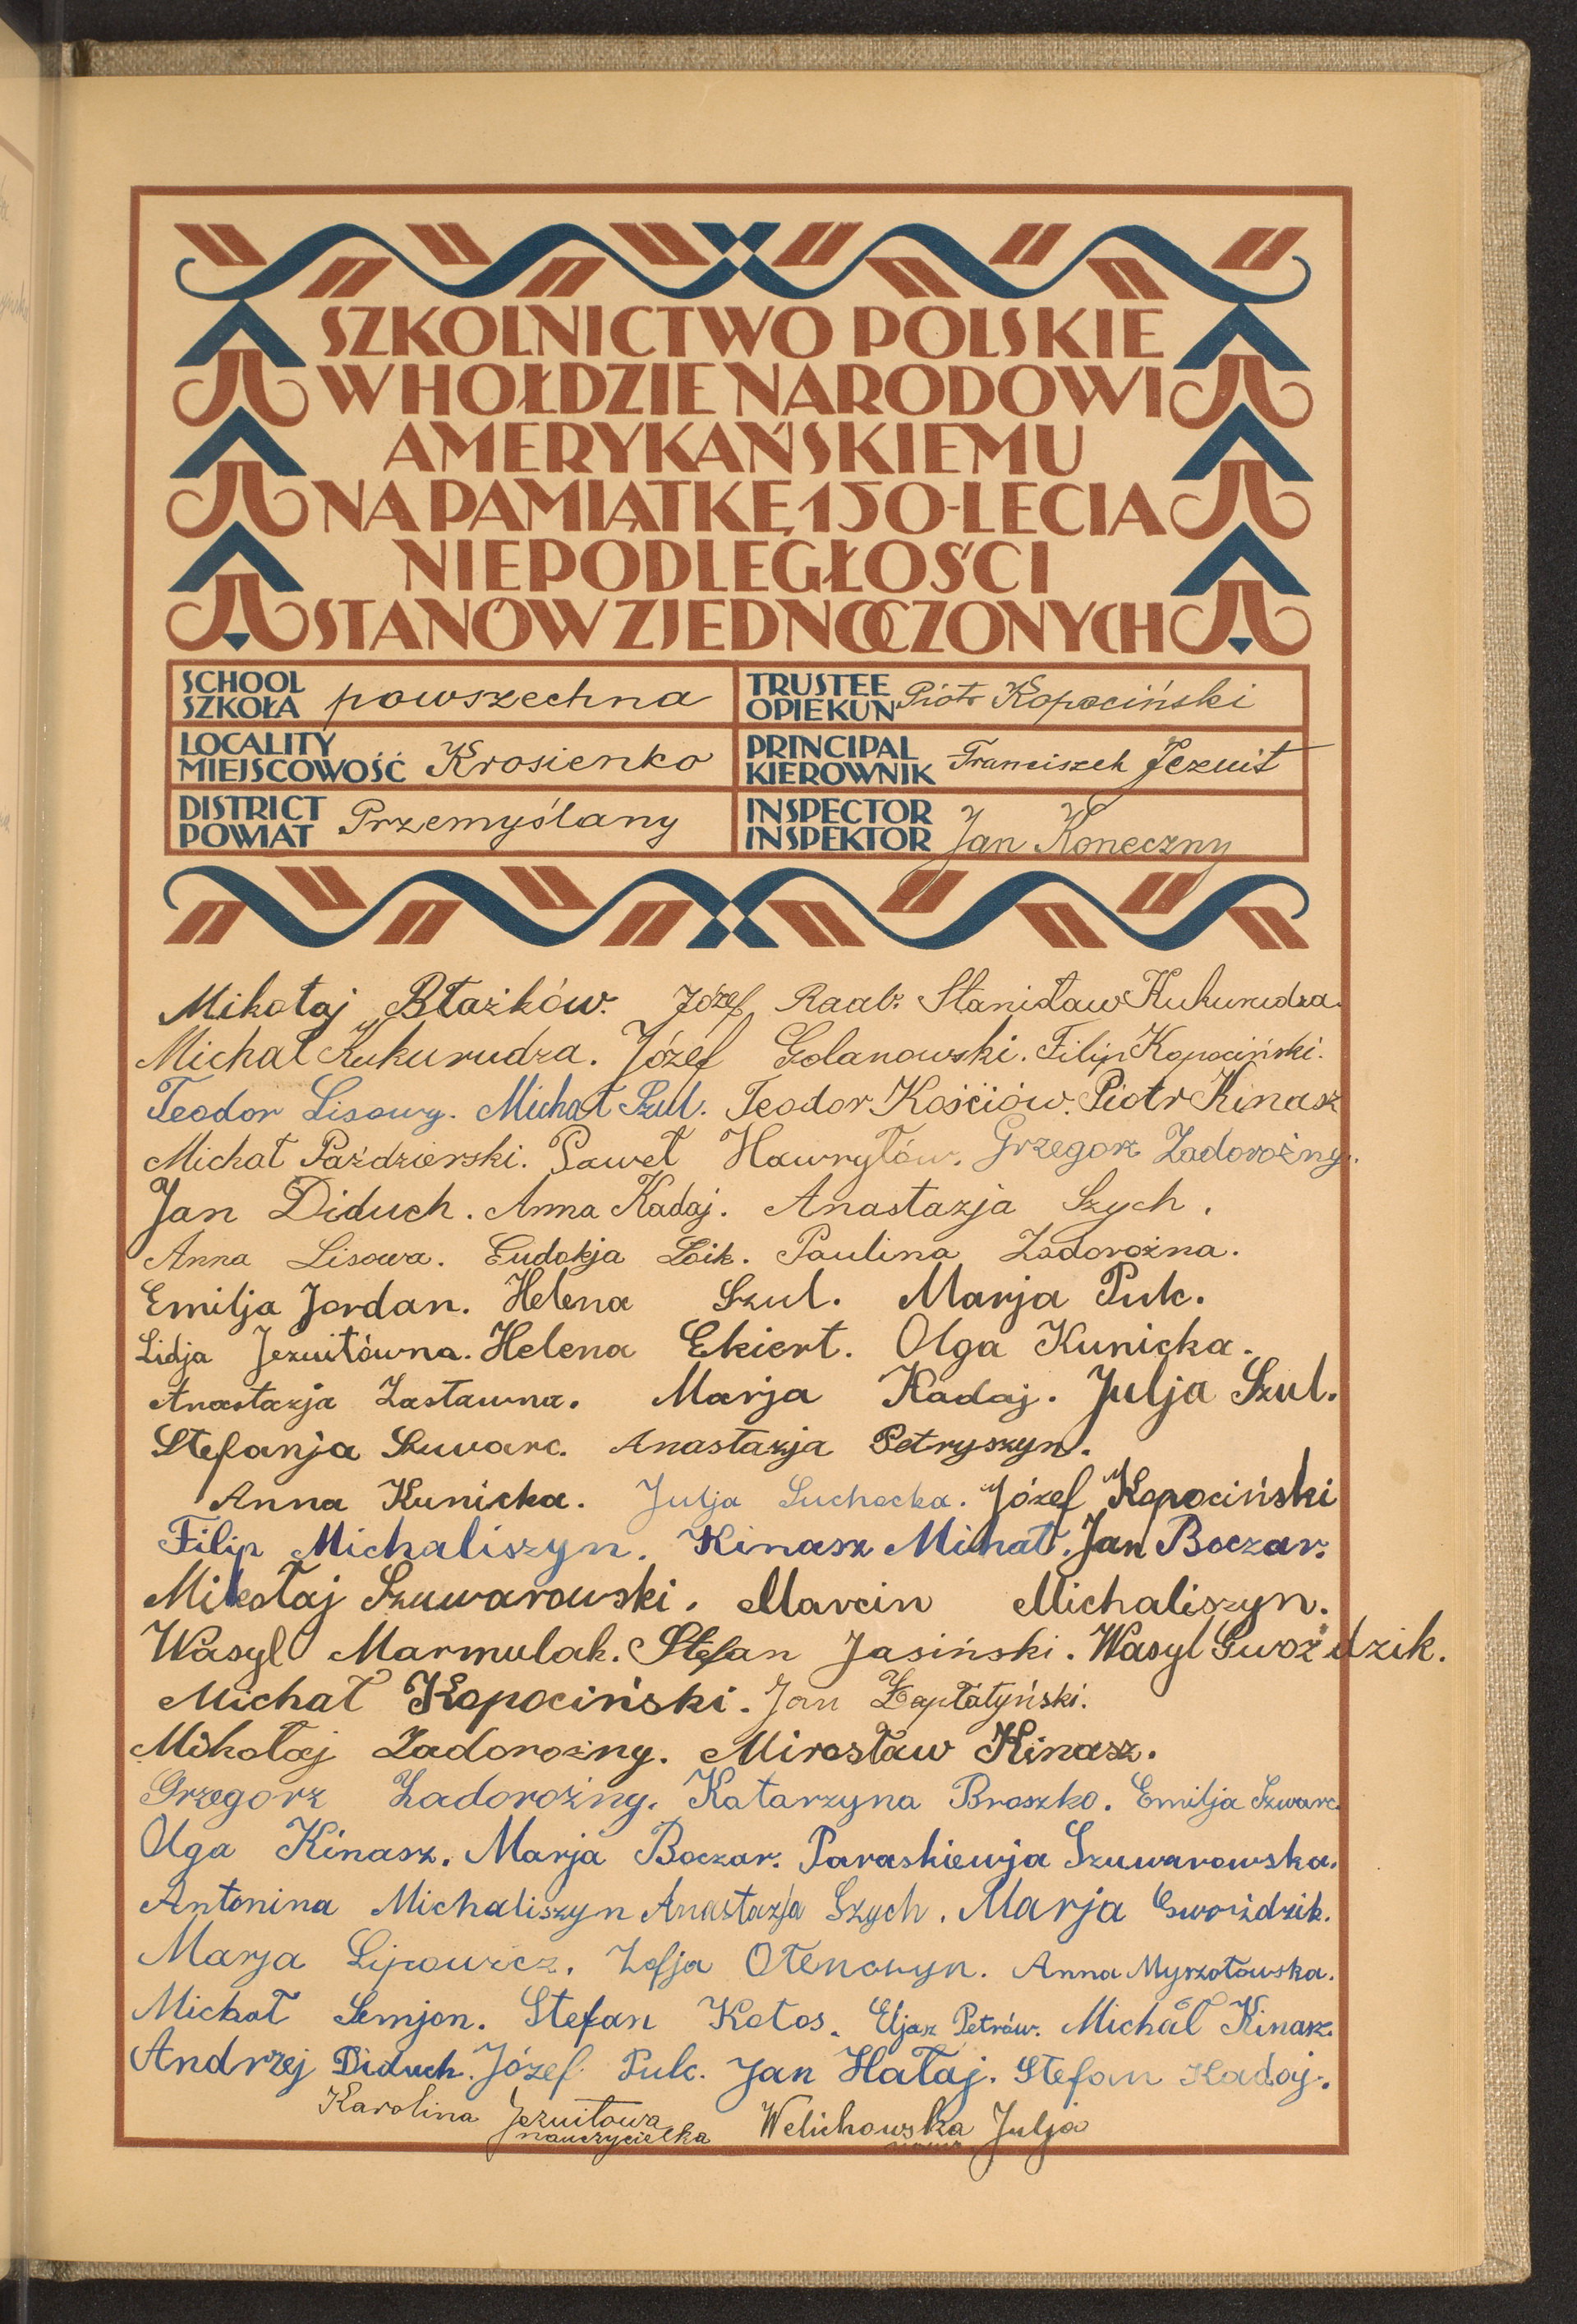 SZKOLNICTWO POLSKIE
W HOŁDZIE NARODOWI
AMERYKAŃSKIEMU
NA PAMIĄTKĘ 150-LECIA
NIEPODLEGŁOŚCI
STANÓW ZJEDNOCZONYCH
SCHOOL SZKOŁA powszechna
TRUSTEE OPIEKUN Piotr Kopociński
LOCALITY MIEJSCOWOŚĆ Krosienko
PRINCIPAL KIEROWNIK Franciszek Jezuit
DISTRICT POWIAT Przemyślany
INSPECTOR INSPEKTOR Jan Koneczny
Mikołaj Błażków. Józef Raab. Stanisław Kukurudza.
Michał Kukurudza. Józef Golanowski. Filip Kopociński.
Teodor Lisowy. Michał Szul. Teodor Kościów. Piotr Kinasz
Michał Paździerski. Paweł Hawryłów. Grzegorz Zadorożny.
Jan Diduch. Anna Kadaj. Anastazja Szych.
Anna Lisowa. Eudokja Łoik. Paulina Zadorożna.
Emilja Jordan. Helena Szul. Marja Puk.
Lidja Jezuitówna. Helena Ekiert. Olga Kunicka.
Anastazja Zastawna. Marja Kadaj. Julja Szul.
Stefanja Szwarc. Anastazja Petryszyn.
Anna Kunicka. Julja Suchocka. Józef Kopociński
Filip Michaliszyn. Kinasz Michał. Jan Boczar.
Mikołaj Szuwarowski. Marcin Michaliszyn.
Wasyl Marmulak. Stefan Jasiński. Wasyl Gwoździk.
Michał Kopociński. Jan Zapłatyński.
Mikołaj Zadorożny. Mirosław Kinasz.
Grzegorz Zadorożny. Katarzyna Broszko. Emilja Szwarc.
Olga Kinasz. Marja Boczar. Paraskiewja Szuwarowska.
Antonina Michaliszyn Anastazja Szych. Marja Gwoździk.
Marja Lipowicz. Zofja Ołenczyn. Anna Myszołowska.
Michał Semjon. Stefan Kołos. Eljasz Petrów. Michał Kinasz.
Andrzej Diduch. Józef Puk. Jan Hałaj. Stefan Kadaj.
Karolina Jezuitowa Welichowska Julja
nauczycielka